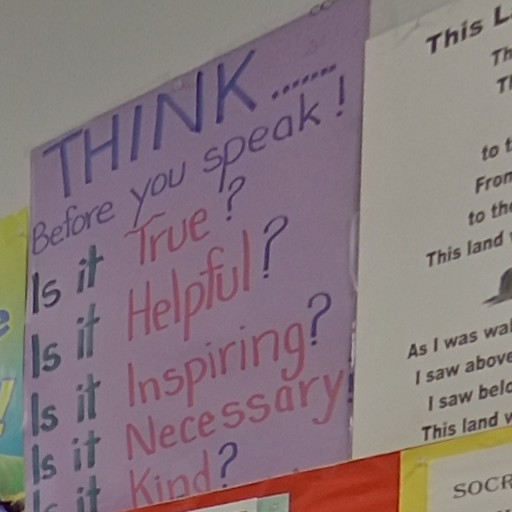 THINK.......
Before you speak!
Is it True?
Is it Helpful?
Is it Inspiring?
Is it Necessary!
Is it Kind?
This L
Th
to t
From
to the
This land
As I was wal
I saw above
I saw belo
This land w
SOCR